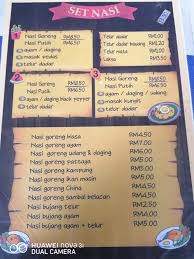 SET NASI
1
Nasi Goreng RM8.50
Nasi Putih
ayam / daging
masak
telur dadar
Telur dadar RM1.00
Telur dadar bawang RM1.20
Telur mata RM1.00
Laksa RM3.50
2
Nasi Goreng RM8.50
Nasi Putih RM6.50
ayam / daging black pepper
telur dadar
3
Nasi Goreng
Nasi Putih
ayam / daging
masak kunyit
telur dadar
Nasi goreng biasa RM4.50
Nasi goreng ayam RM7.00
Nasi goreng udang & daging RM7.00
Nasi goreng pattaya RM6.00
Nasi goreng kampung RM5.00
Nasi goreng ikan masin RM5.00
Nasi goreng China RM4.50
Nasi goreng sambal belacan RM4.50
Nasi bujang telur RM2.50
Nasi bujang ayam RM4.00
Nasi bujang ayam + telur RM5.00
HUAWEI nova 3i
DUAL CAMERA